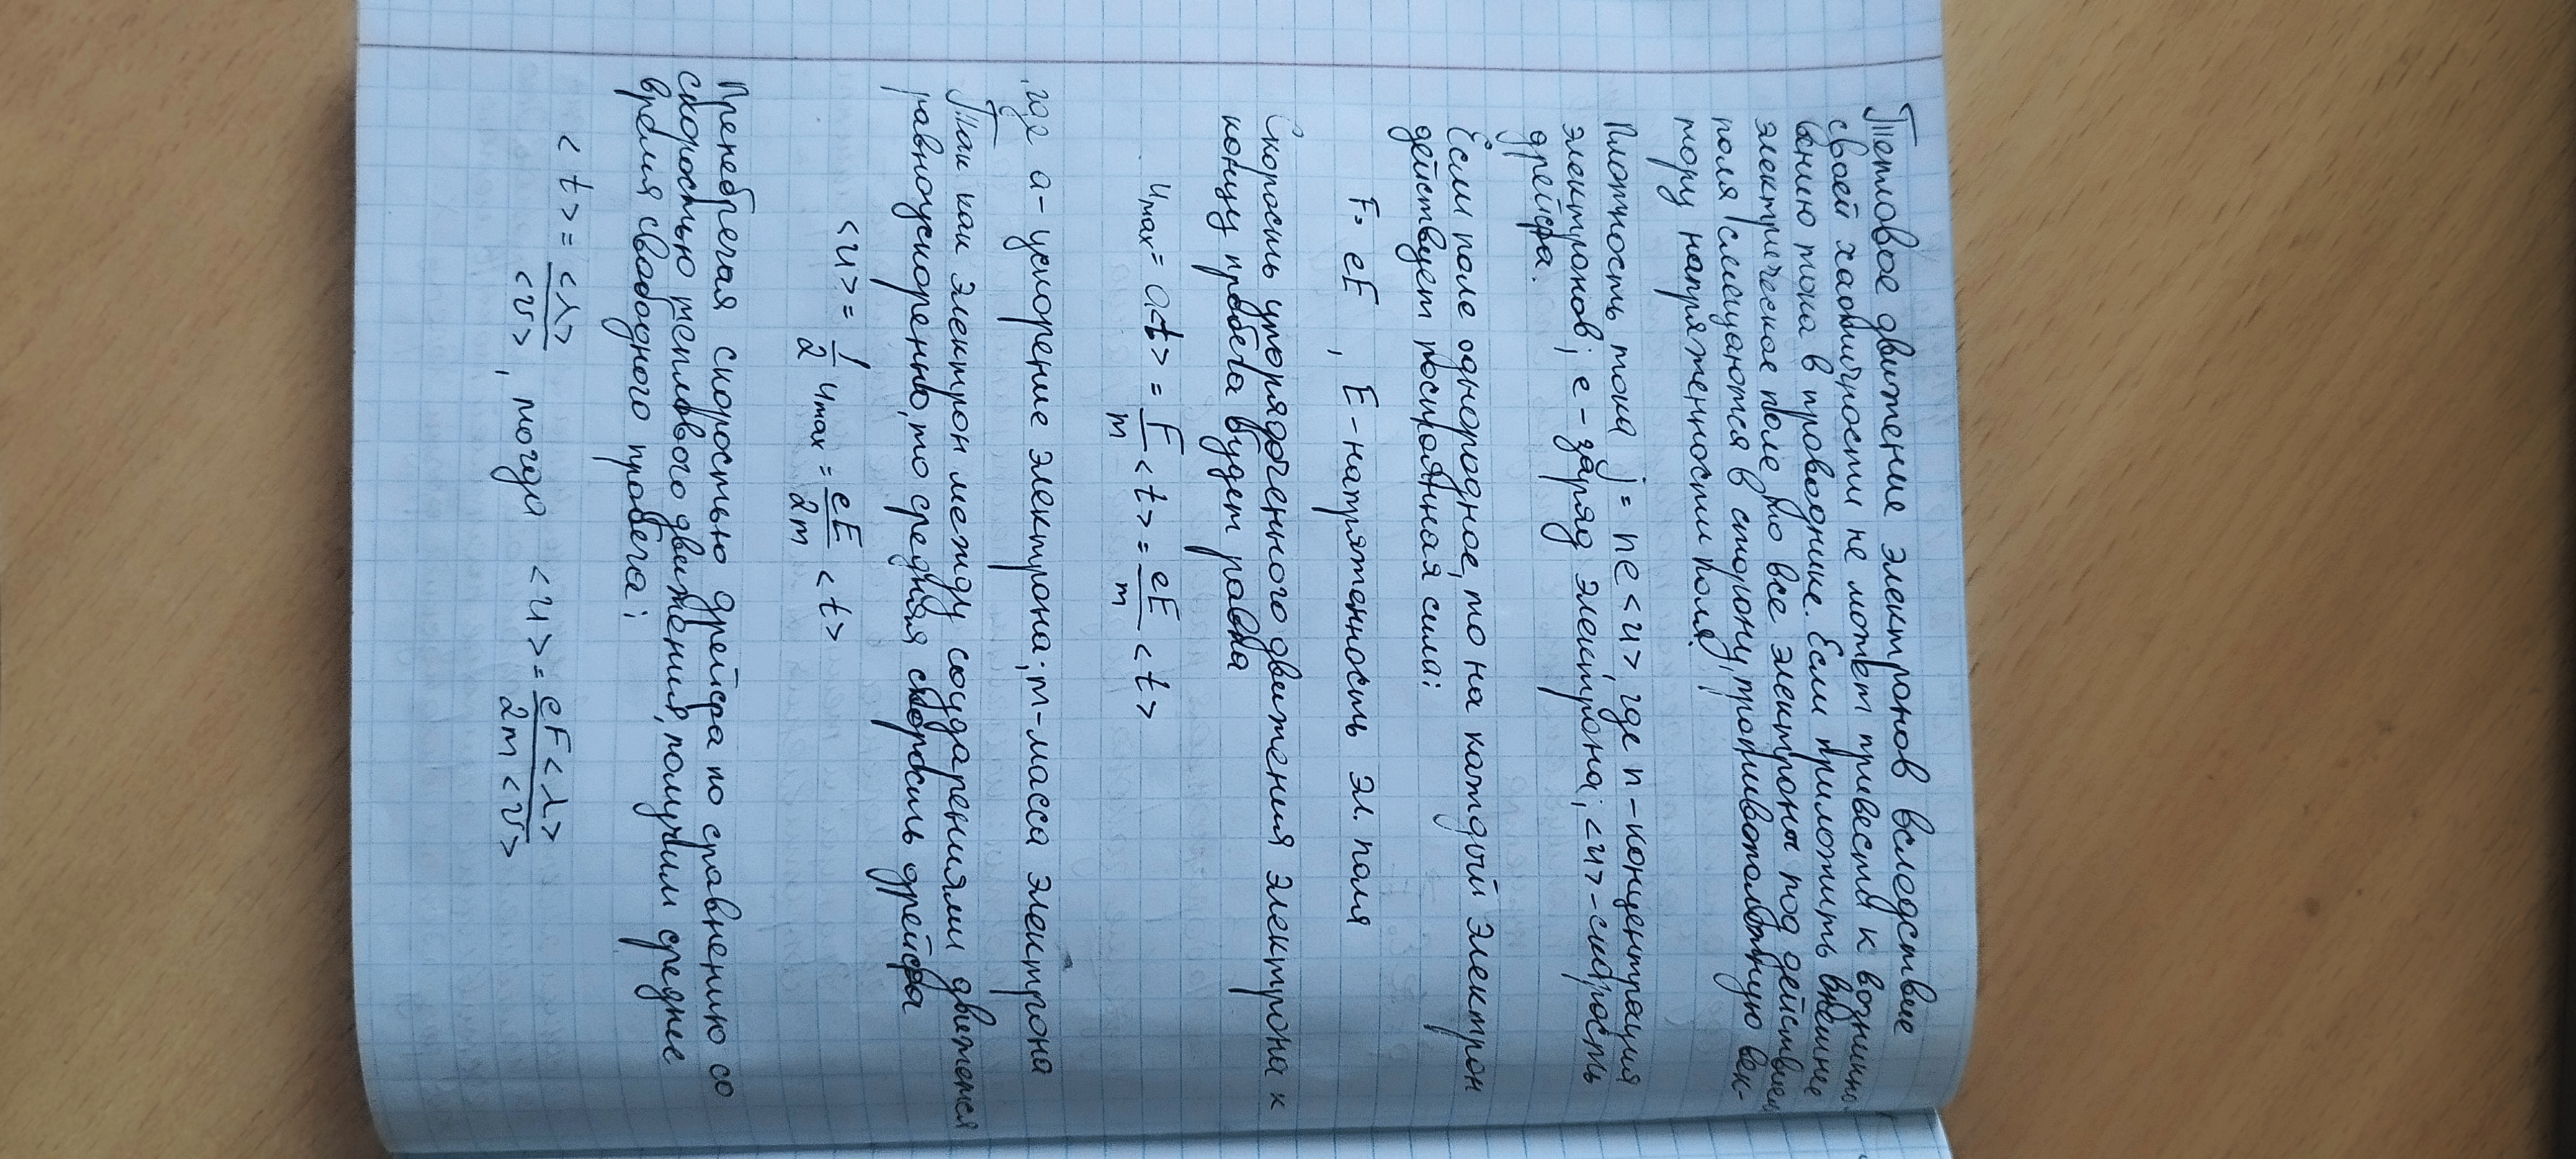 Тепловое движение электронов вследствие
своей хаотичности не может привести к возникно-
вению тока в проводнике. Если приложить внешнее
электрическое поле, то все электроны под действием
поля смещаются в сторону, противоположную век-
тору напряженности поля.
Плотность тока j = ne<u>, где n - концентрация
электронов; e - заряд электрона; <u> - скорость
дрейфа.
Если поле однородное, то на каждый электрон
действует постоянная сила:
F = eE , E - напряженность эл. поля
Скорость упорядоченного движения электрона к
концу пробега будет равна
u_max = a<t> = F/m <t> = eE/m <t>
, где a - ускорение электрона; m - масса электрона
Так как электрон между соударениями движется
равноускоренно, то средняя скорость дрейфа
<u> = 1/2 u_max = eE/2m <t>
Пренебрегая скоростью дрейфа по сравнению со
скоростью теплового движения, получим среднее
время свободного пробега:
<t> = <λ>/<v> , тогда <u> = eE<λ>/2m<v>